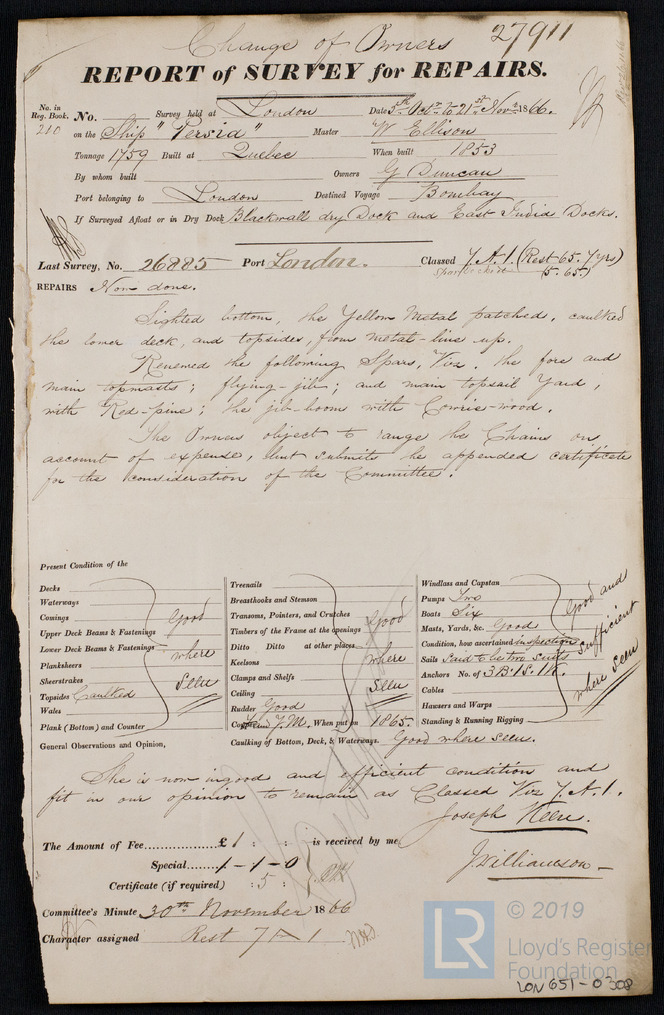 Change of Owners 27911
REPORT of SURVEY for REPAIRS.
No. in Reg. Book. No. Survey held at London Date 5th Octr to 21st Novr 1866.
210 on the Ship "Persia" Master W Ellison
Tonnage 1759 Built at Quebec When built 1853
By whom built Owners G Duncan
Port belonging to London Destined Voyage Bombay
If Surveyed Afloat or in Dry Dock Blackwall dry Dock and East India Docks.
Last Survey, No. 26885 Port London. Classed 7. A. 1. (Rest 65. 7 yrs)
5. 65.)
REPAIRS Now done.
Sighted bottom, the Yellow Metal patched, caulked
the lower deck, and topsides, from metal-line up.
Renewed the following Spars, Viz. the fore and
main topmasts; flying-jib; and main topsail Yard,
with Red-pine; the jib-boom with Cowrie-wood.
The Owners object to range the Chains on
account of expense, but submits he appended certificate
for the consideration of the Committee.
Present Condition of the
Decks
Waterways
Comings
Upper Deck Beams & Fastenings
Lower Deck Beams & Fastenings
Planksheers
Sheerstrakes
Topsides Caulked
Wales
Plank (Bottom) and Counter
Good
where
Seen
Treenails
Breasthooks and Stemson
Transoms, Pointers, and Crutches
Timbers of the Frame at the openings
Ditto Ditto at other places
Keelsons
Clamps and Shelfs
Ceiling
Rudder Good
Y.M., When put on 1865.
Good
where
Seen
Windlass and Capstan
Pumps Two
Boats Six
Masts, Yards, &c. Good
Condition, how ascertained inspection
Sails Said to be two suits
Anchors No. of 3 B. 1 S. 1 K.
Cables
Hawsers and Warps
Standing & Running Rigging
Good and
sufficient
where seen
General Observations and Opinion, Caulking of Bottom, Deck, & Waterways. Good where seen.
She is now in good and efficient condition and
fit in our opinion to remain as Classed Viz 7. A. 1.
Joseph Keen.
The Amount of Fee £1 : : is received by me,
J. Williamson
Special 1-1-0
Certificate (if required) : 5 :
Committee's Minute 30th November 1866
Character assigned Rest 7 A 1
LR © 2019
Lloyd's Register
Foundation
LON 651-0308